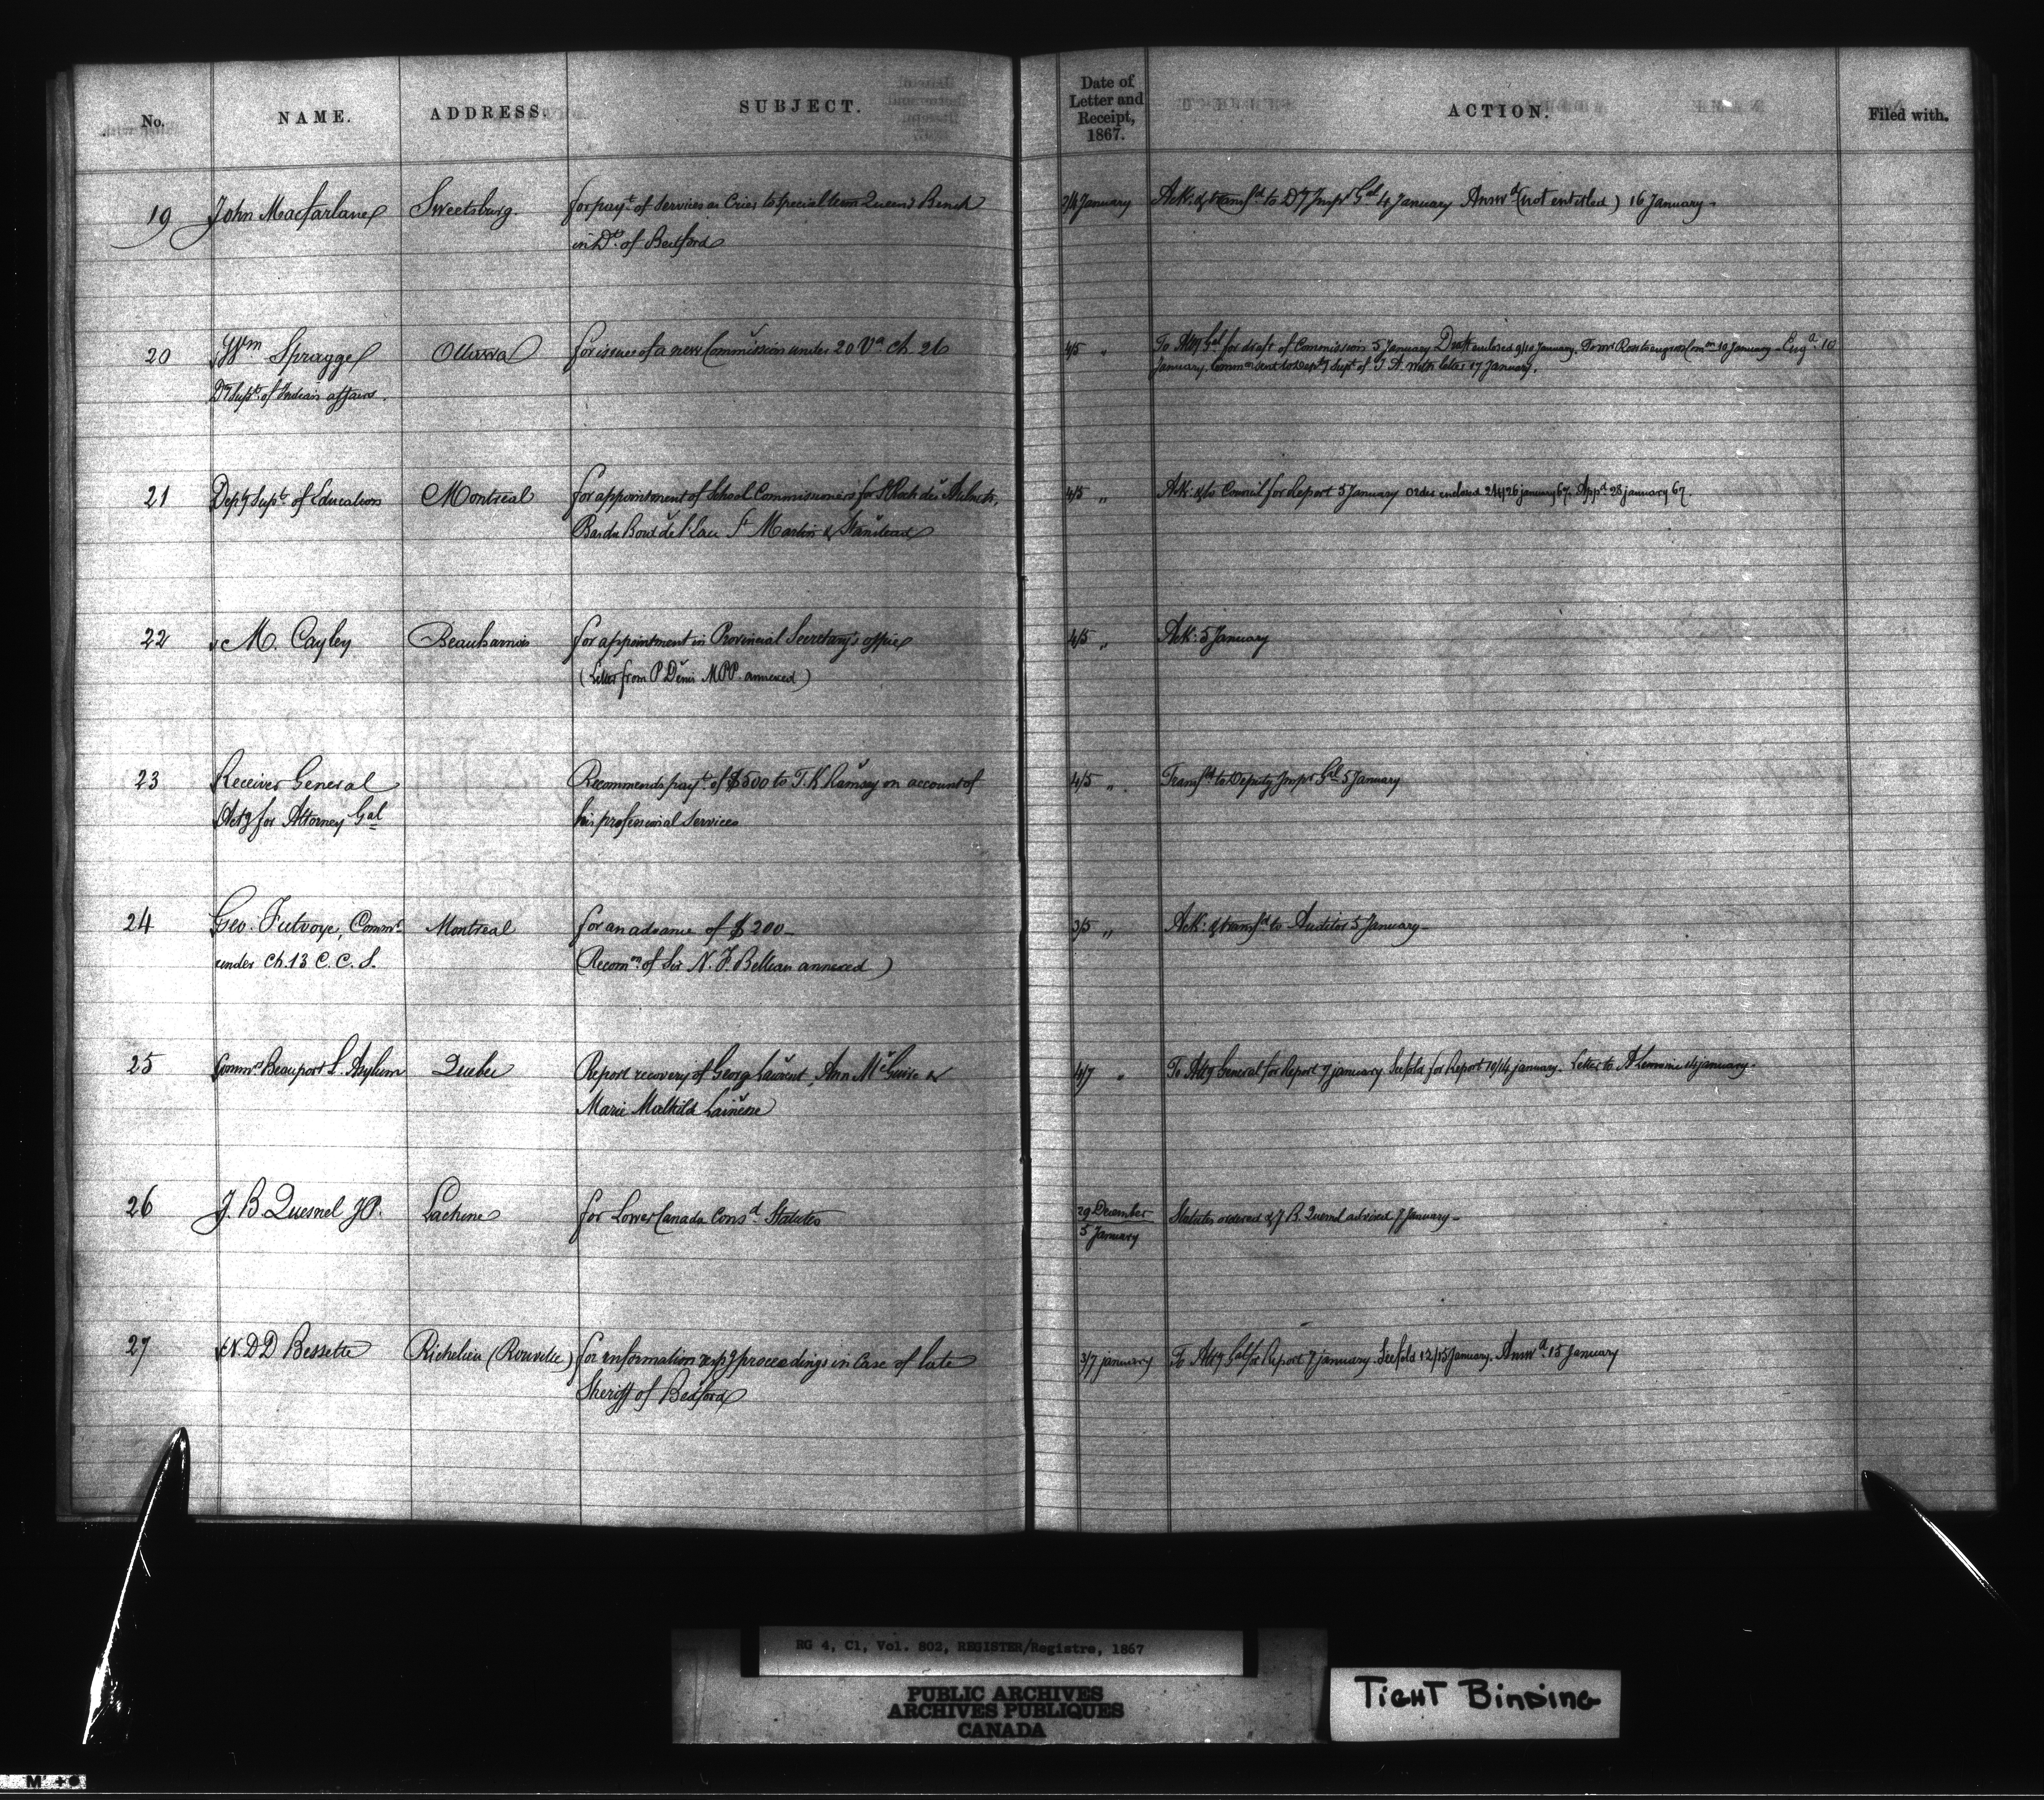 No.
NAME.
ADDRESS.
SUBJECT.
Date of
Letter and
Receipt,
1867.
ACTION.
Filed with.
19
John Macfarlane
Sweetsburg.
for payt of Services as Crier to special term Queens Bench
in Dt of Bedford
2/4 January
Ack: & transfd to Dy Inspr Gal 4 January Answd (not entitled) 16 January-
20
Wm Spragge
Dy Supt of Indian affairs.
Ottawa
for issue of a new Commission under 20 Va Ch. 26
4/5 "
To Atty Gal for draft of Commission 5 January Draft enclosed 9/10 January. to engross Comon 10 January - Engd 10
January. Common sent to Depty Supt of I. A. with letter 17 January.
21
Depy Supt of Education
Montreal
for appointment of School Commissioners for St Roch des Aulnets,
Bas du Bout de l'Isle St Martin & Stanstead
4/5 "
Ack: & to Council for Report 5 January Order enclosed 24/26 january 67. Appd 28 january 67.
22
M. Cayley
Beauharnois
for appointment in Provincial Secretary's office
(Letter from P Denis MPP. annexed)
4/5 "
Ack: 5 January
23
Receiver General
Actg for Attorney Gal
Recommends payt of $500 to T. K Ramsay on account of
his professional Services
4/5 "
Transfd to Deputy Inspr Gal 5 January
24
Geo. Futvoye, Commr
under Ch. 13 C. C. S.
Montreal
for an advance of $200-
(Recomn of Sir N. F. Belleau annexed)
3/5 "
Ack: & transfd to Auditor 5 January-
25
Commrs Beauport L. Asylum
Quebec
Report recovery of Georg Laurent, Ann McGuire &
Marie Mathilde
4/7 "
To Atty General for Report 7 january for Report 10/14 january. Letter to A Lemoine 14 january.
26
J. B. Quesnel JP.
Lachine
for Lower Canada Consd Statutes
29 December
5 January
Statutes ordered & J B. Quesnel advised 7 January-
27
N. D D Bessette
Richelieu (Rouville)
for information respg proceedings in Case of late
Sheriff of Bedford
3/7 january
To Atty Gal for Report 7 january 12/15 January. Answd 15 January
RG 4, C1, Vol. 802, REGISTER/Registre, 1867
PUBLIC ARCHIVES
ARCHIVES PUBLIQUES
CANADA
TIGHT BINDING